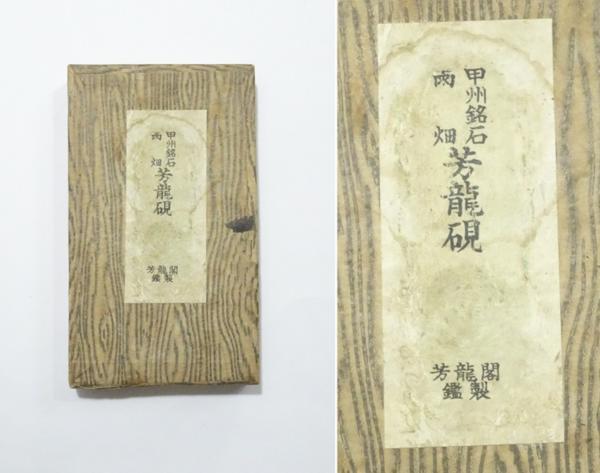 甲州銘石
雨畑
芳龍硯
芳龍閣
鑑製
甲州銘石
雨畑
芳龍硯
芳龍閣
鑑製